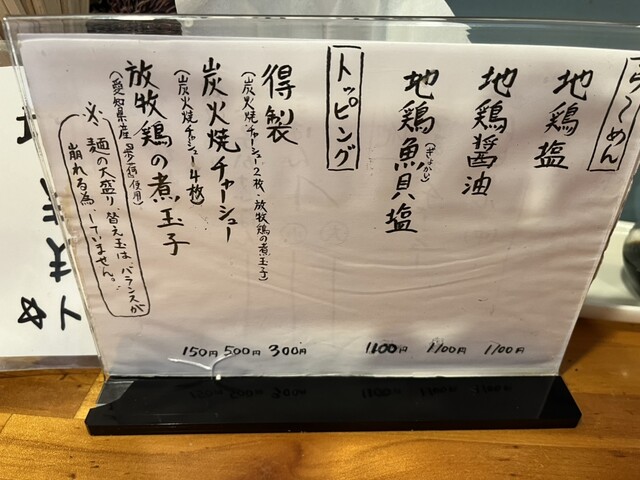 らーめん
地鶏塩 1100円
地鶏醤油 1100円
地鶏魚貝塩 1100円
(ぎょかい)
トッピング
得製 300円
(炭火焼チャーシュー2枚・放牧鶏の煮玉子)
炭火焼チャーシュー 500円
(炭火焼チャーシュー4枚)
放牧鶏の煮玉子 150円
(愛知県産 使用)
※ 麺の大盛り替え玉は、バランスが
崩れる為、していません。